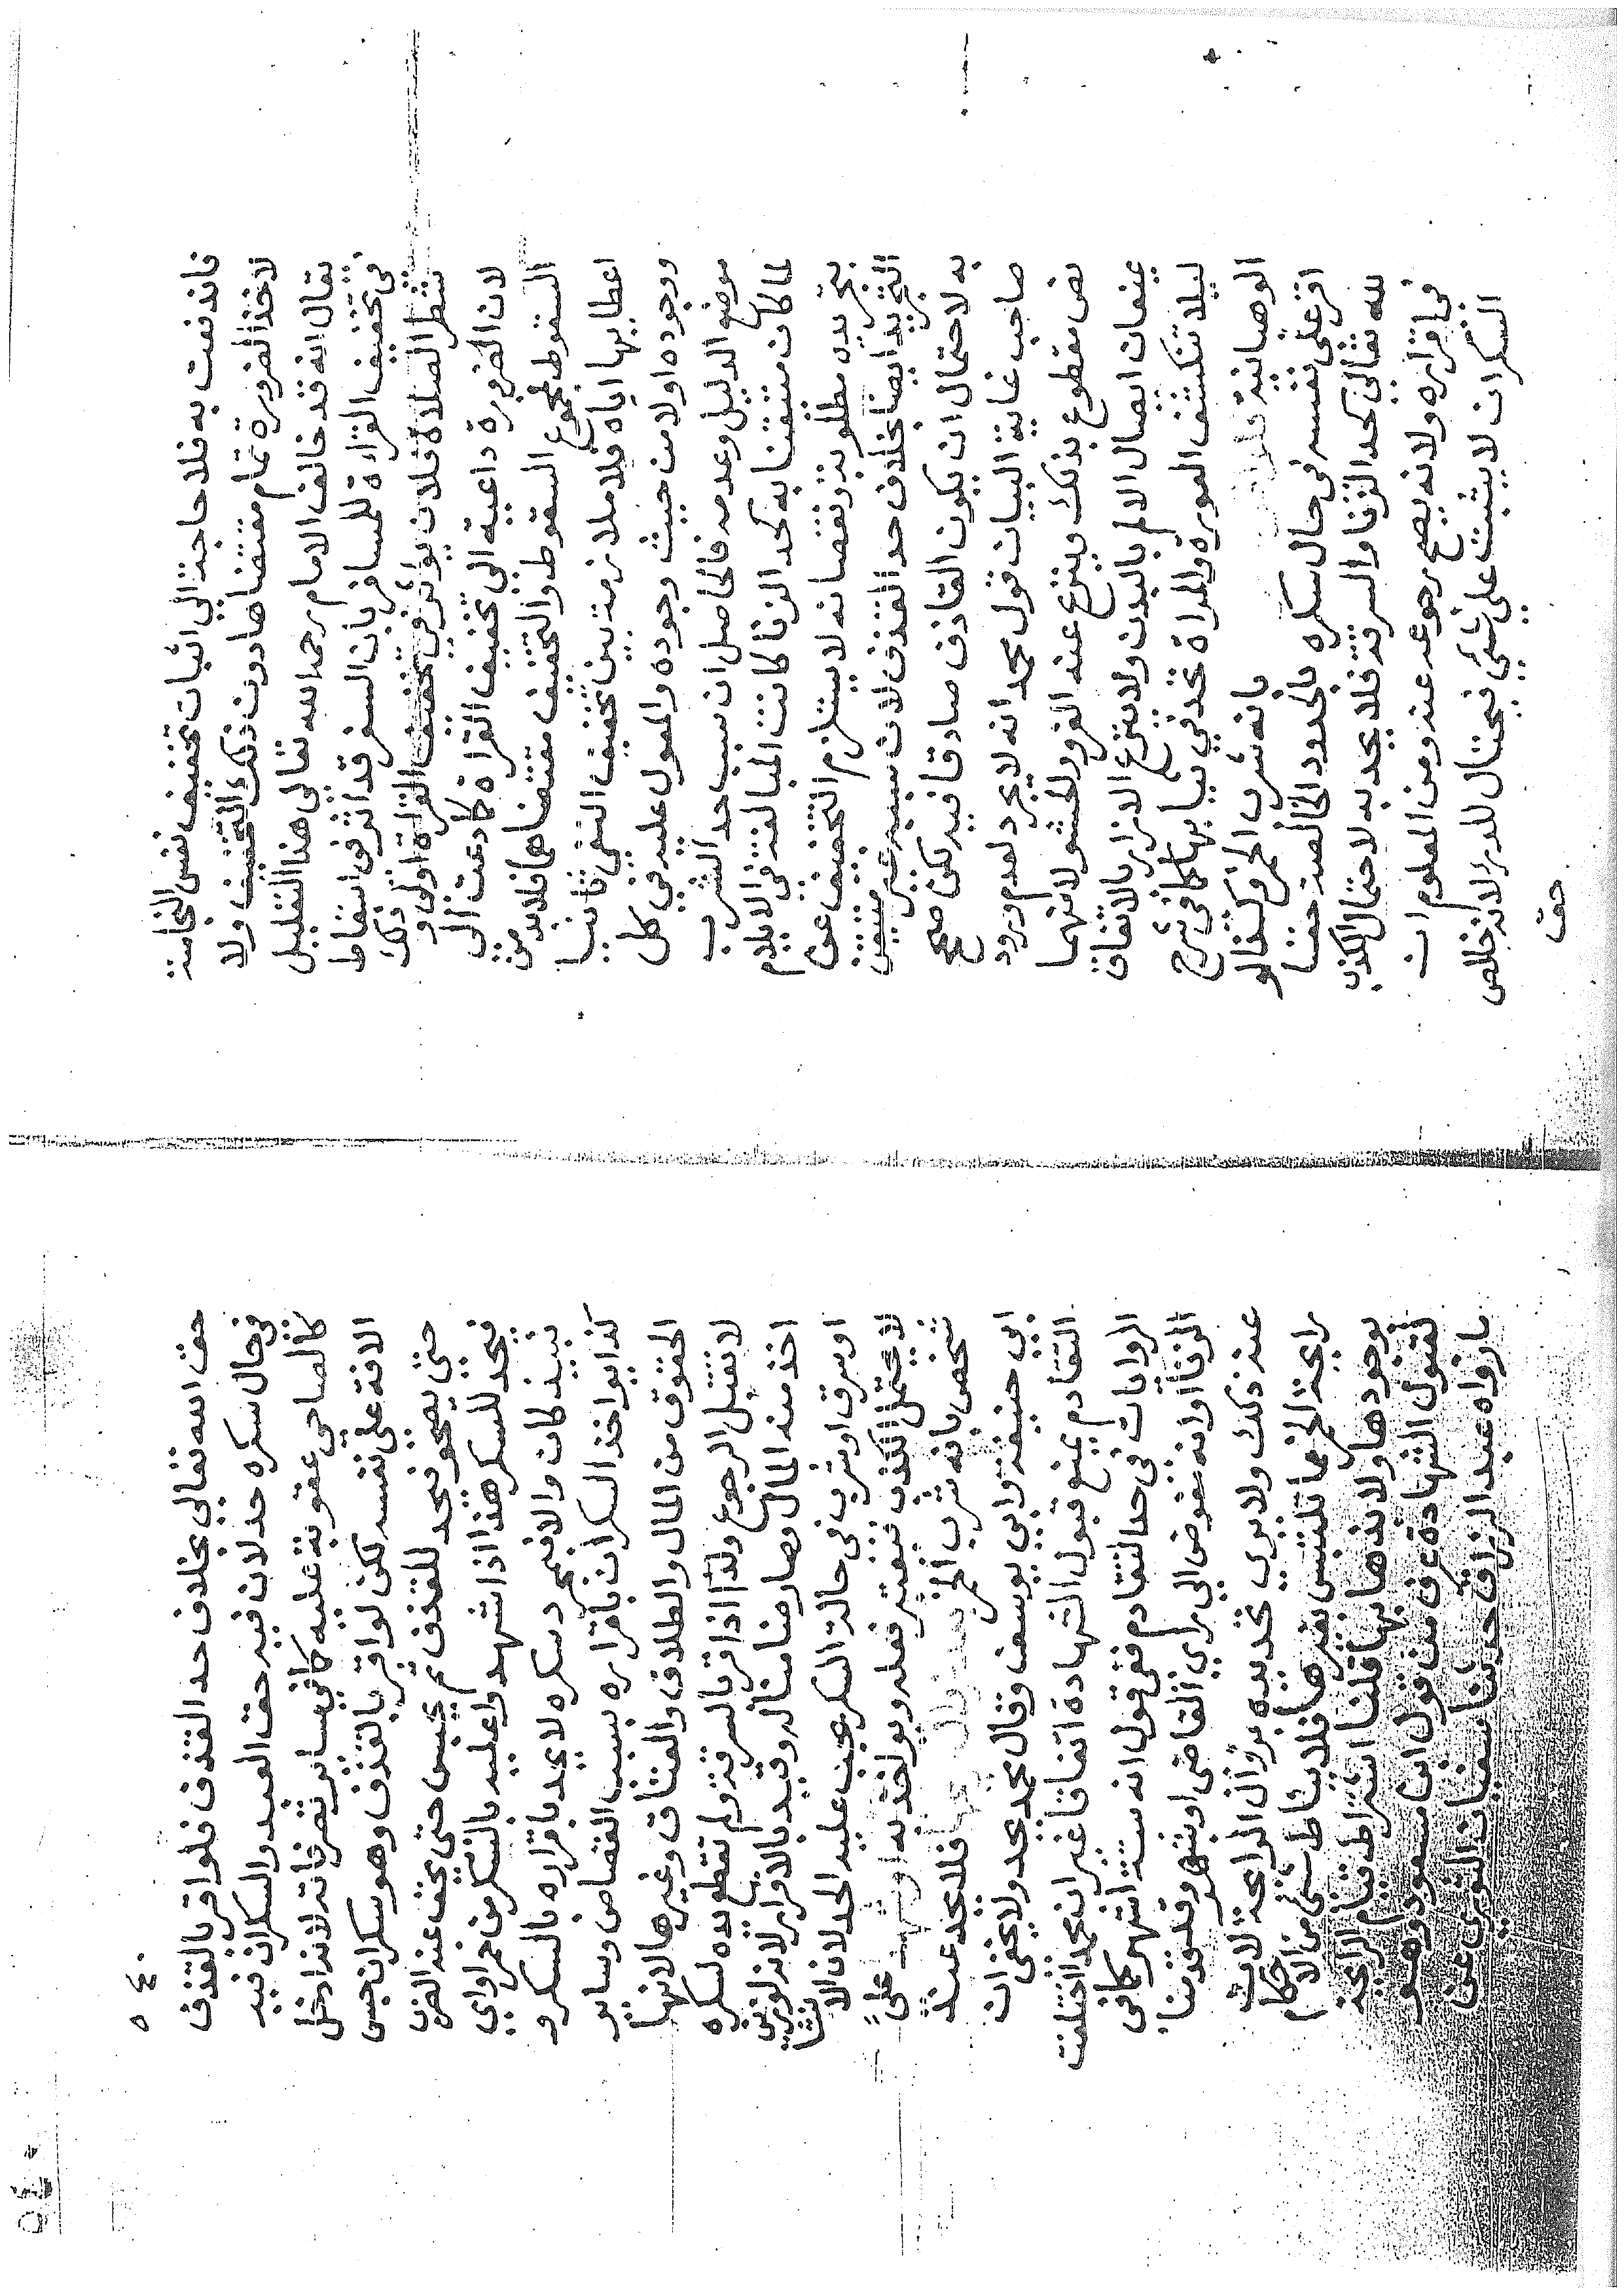 فاندفعت به فلا حاجة الى اثبات تخفيف نفس النجاسة
لاخذ الضرورة تمام مقتضاها دون ذلك التخفيف ولا
يقال انه قد خالف الامام رحمه الله تعالى هذا التعليل
في تخفيف القراءة للمسافر بان السفر قد اثر في اسقاط
شطر الصلاة فلان يؤثر في تخفيف القراة اولى و ذلك
لان الضرورة داعية الى تخفيف القراة كما دعت الى
السقوط لمجموع السقوط والتخفيف مقتضاها فلابد من
اعطايها اياه فلا ملازمة بين تخفيف النفي ثانيا
ووجوده اولا من حيث وجوده والمعول عليه في كل
موضع الدليل وعدمه فالحاصل ان سبب حد الشرب
لما كان متيقنا به كحد الزنا كانت المبالغة في الايلام
بتجريده مطلوبة ونقصانه لا يستلزم التخفيف عن
التجريد ايضا بخلاف حد القذف لان سببه غير متيقن
به لاحتمال ان يكون القاذف صادقا فيه لكن صحح
صاحب غاية البيان قول محمد انه لا يجرد لعدم ورود
نص مقطوع بذلك وينزع عنه الفرو والحشو لانهما
يمنعان ايصال الالم بالبدن ولا ينزع الازار بالاتفاق
ليلا تنكشف العوره والمراة تحد في ثيابها كما في شرح
الوهبانية فلو اقر بانه شرب الخمر كسقالو
اقر على نفسه في حال سكره بالحدود الخالصة حقا
لله تعالى كحد الزنا والسرقة فلا يحد به لاحتمال الكذب
في اقراره ولانه يصح رجوعه عنه ومن المعلوم ان
السكران لا يثبت على شئ فيحتال للدرء لانه خالص
حق
٥٤٠
حق الله تعالى بخلاف حد القذف فلو اقر بالقذف
في حال سكره حد لان فيه حق العبد والسكران فيه
كالصاحي عقوبة عليه كما في ساير تصرفاته لانه ادخل
الافة على نفسه لكن لو اقر بالقذف وهو سكران حبس
حتى يصحو فيحد للقذف ثم يحبس حتى يخف عنه الضرب
فيحد للسكر هذا اذا شهدوا عليه بالسكر من خمر او اي
نبيذ كان والا فبمجرد سكره لا يحد باقراره بالسكر و
كذا يواخذ السكران باقراره بسبب القصاص وساير
الحقوق من المال والطلاق والعتاق وغيرها لانها
لا تقبل الرجوع ولذا اذا اقر بالسرقة ولم تقطع يده لسكره
اخذ منه المال وصار ضامنا له وقيد بالاقرار لانه لو زنى
او سرق او شرب في حالة السكر يجب عليه الحد لان الانشا
لا يحتمل الكذب فيعتبر فعله ويواخذ به او شهد على
شخص بانه شرب الخمر بعد زوال ريحها فلا يحد عند
ابي حنيفة وابي يوسف وقال محمد يحد ولا يخفى ان
التقادم يمنع قبول الشهادة اتفاقا غير ان محمدا اختلفت
الروايات في حد التقادم ففي قول انه ستة اشهر كما في
الزنا او انه مفوض الى راي القاضي او شهر وقد قدمنا
عند ذلك ولا يرى تحديده بزوال الرايحة لان
رايحة الخمر مما تلتبس بغيرها فلا يناط شئ من الاحكام
بوجودها ولا بذهابها قلنا اشتراط قيام الرايحة
لقبول الشهادة عرف من قول ابن مسعود وهو
ما رواه عبد الرزاق حدثنا سفيان الثوري عن